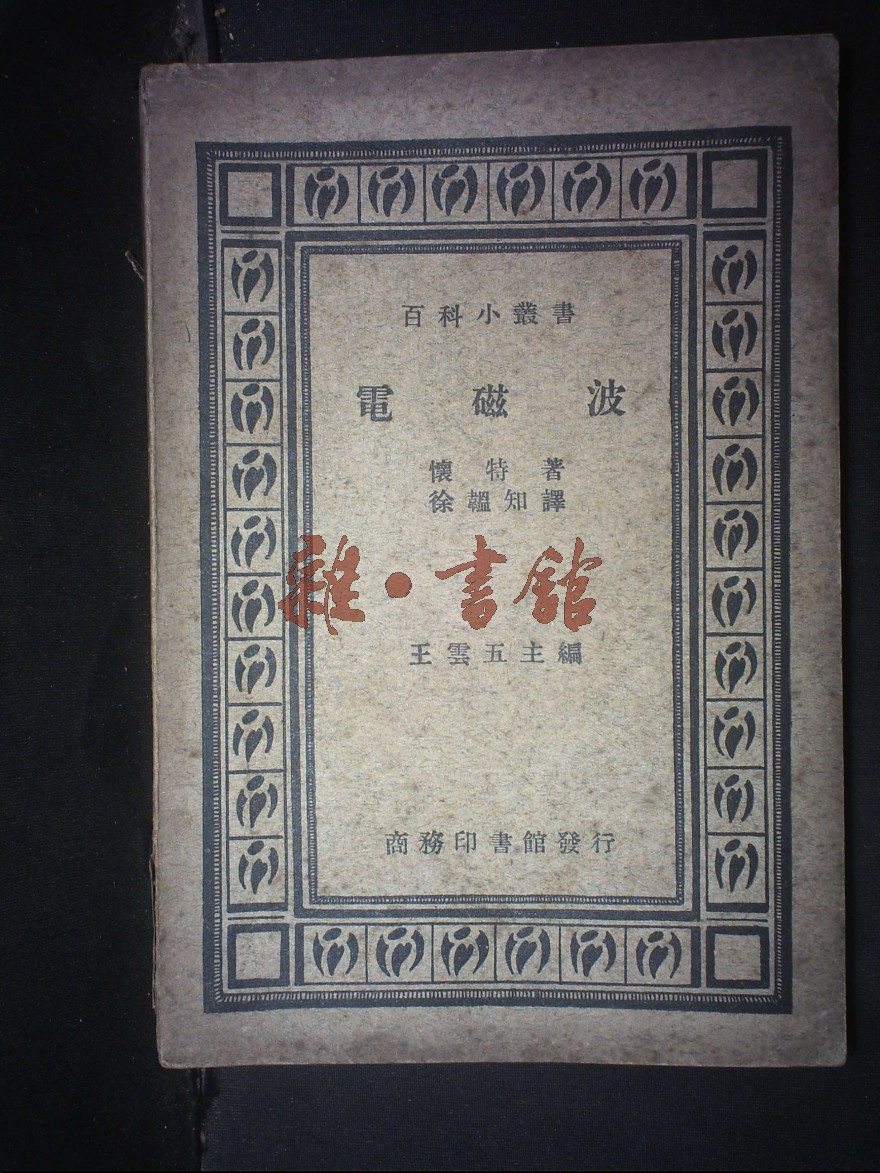 百科小叢書
電磁波
懷特著
徐韞知譯
雜·書館
王雲五主編
商務印書館發行